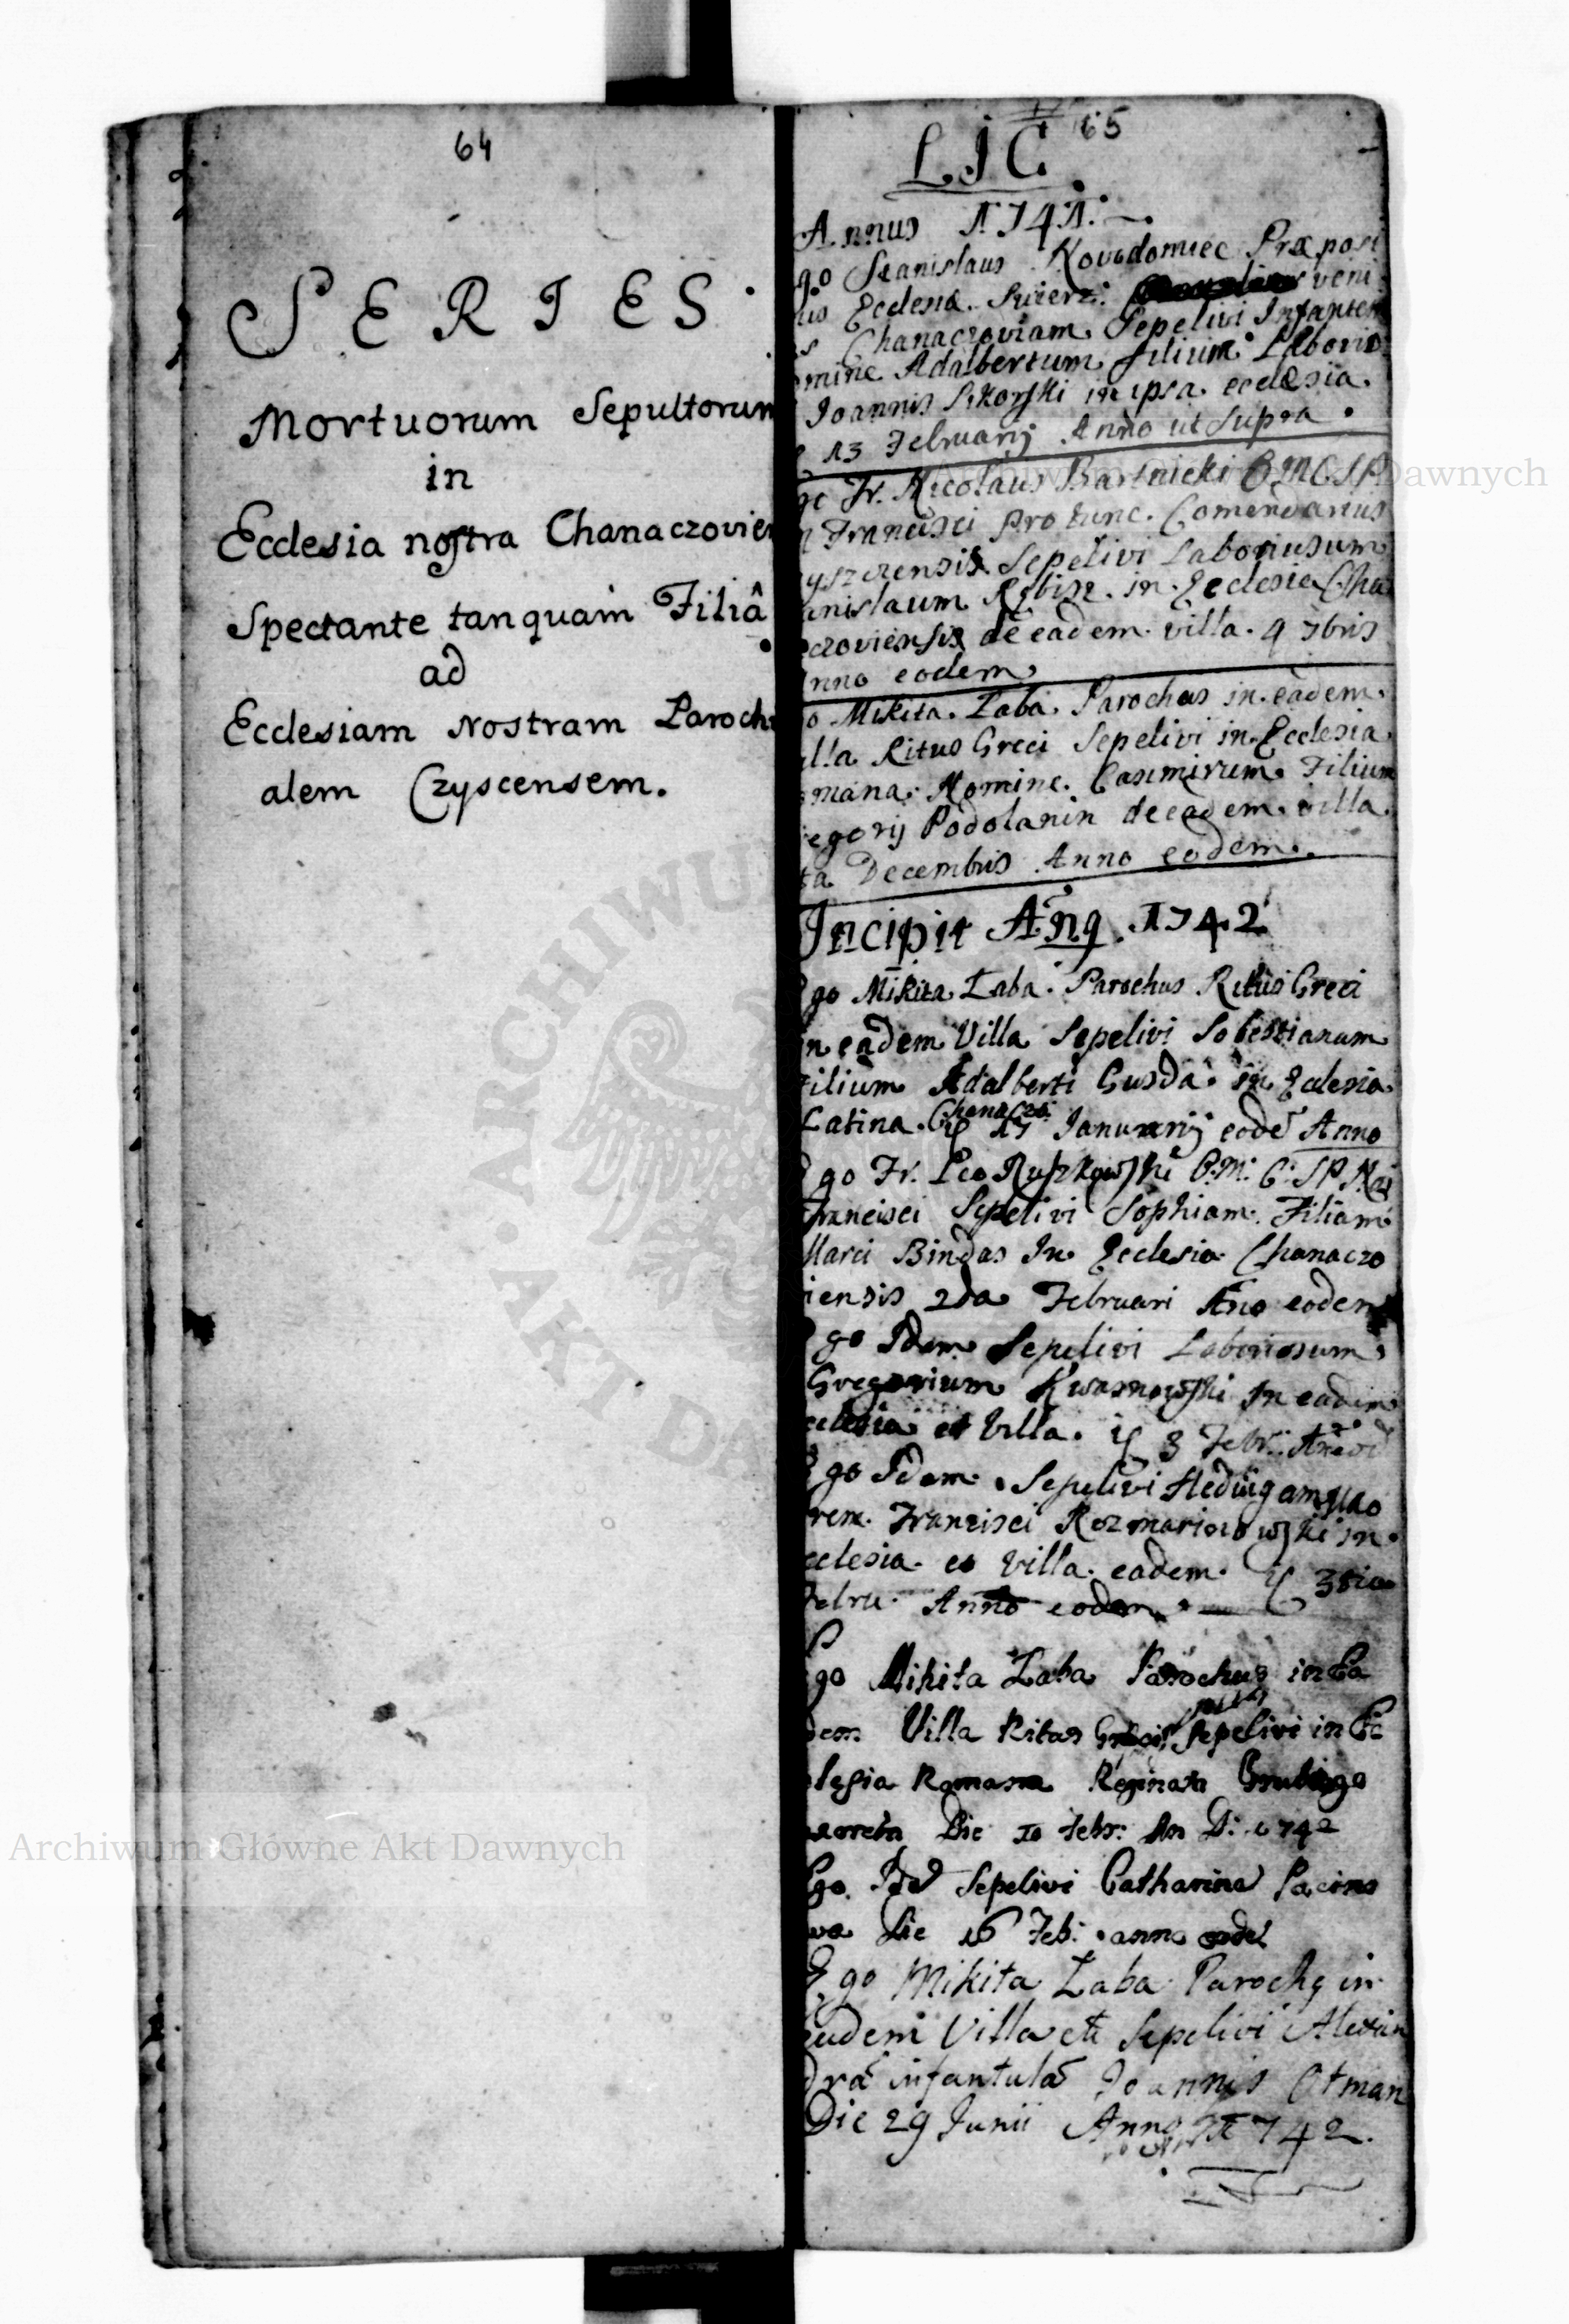 64
SERIES
Mortuorum Sepultorum
in
Ecclesia nostra Chanaczovien
Spectante tanquam Filiâ
ad
Ecclesiam Nostram Paroch
alem Czyscensem.
65
LJC
Annus 1741.
go Stanislaus Novodomiec Præposi
us Ecclesiæ Swierz: veni
s Chanaczoviam Sepelivi Infantem
mine Adalbertum filium Laborio
Joannis Sikorski in ipsa ecclesia
13 Februarij Anno ut Supra.
go Fr. Nicolaus Bartnicki O M C S P
Francisci pro tunc Comendarius
yszczensis Sepelivi Laboriosum
anislaum in Ecclesia Cha
czoviensis de eadem villa. 9 7bris
nno eodem
o Mikita Zaba Parochus in eadem
illa Ritus Greci Sepelivi in Ecclesia
omana Nomine Casimirum Filium
egorij Podolanin de eadem villa
ta Decembris Anno eodem.
Incipit Anq 1742
go Mikita Zaba Parochus Ritus Greci
n eadem Villa Sepelivi Sobestianum
Filium Adalberti Gusda in Eclesia
Latina Chanaczo: 17 Januarij eodē Anno
go Fr. Leo Ruszkowski O: M: C: S P N
Francisci Sepelivi Sophiam Filiam
Marci Bindas In Ecclesia Chanaczo
iensis 2da Februari Ano eodem
go Idem Sepelivi Laboriosum
Gregorium Kwasnowski In eadem
cclesia et Villa. 3 Febr:
go Idem Sepelivi Hedvigam uxo
rem Francisci Rozmarionowski in
cclesia et Villa eadem
Febru Anno eodem
go Mikita Zaba Parochus in Ea
dem Villa Ritus Greci Sepelivi in Ec
lesia Romana
Die 10 Febr: An D: 1742
Ego Idē Sepelivi Catharina
Die 16 Feb: anno eodē
Ego Mikita Zaba Parochq in
eadem Villa etc Sepelivi Alexan
drā infantulā Joannis Otman
Die 29 Junii Anno 1742.
Archiwum Główne Akt Dawnych
Archiwum Główne Akt Dawnych
ARCHIWUM AKT DA